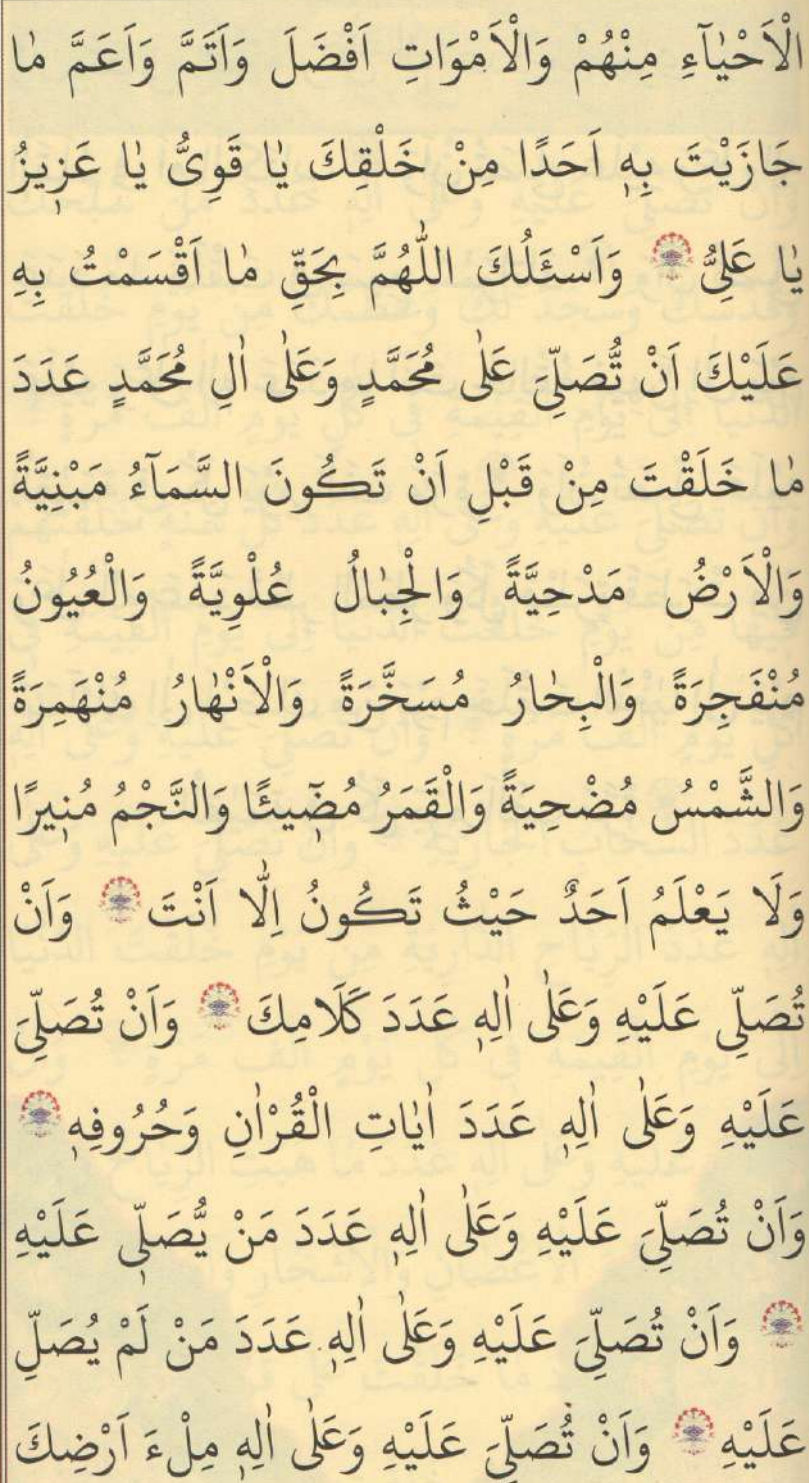 الْاَحْيٰآءِ مِنْهُمْ وَالْاَمْوَاتِ اَفْضَلَ وَاَتَمَّ وَاَعَمَّ مٰا
جَازَيْتَ بِهٖ اَحَدًا مِنْ خَلْقِكَ يٰا قَوِىُّ يٰا عَزٖيزُ
يٰا عَلِىُّ وَاَسْئَلُكَ اللّٰهُمَّ بِحَقِّ مٰا اَقْسَمْتُ بِهِ
عَلَيْكَ اَنْ تُصَلِّىَ عَلٰى مُحَمَّدٍ وَعَلٰى اٰلِ مُحَمَّدٍ عَدَدَ
مٰا خَلَقْتَ مِنْ قَبْلِ اَنْ تَكُونَ السَّمَآءُ مَبْنِيَّةً
وَالْاَرْضُ مَدْحِيَّةً وَالْجِبٰالُ عُلْوِيَّةً وَالْعُيُونُ
مُنْفَجِرَةً وَالْبِحٰارُ مُسَخَّرَةً وَالْاَنْهٰارُ مُنْهَمِرَةً
وَالشَّمْسُ مُضْحِيَةً وَالْقَمَرُ مُضٖٓيئًا وَالنَّجْمُ مُنٖيرًا
وَلَا يَعْلَمُ اَحَدٌ حَيْثُ تَكُونُ اِلّٰا اَنْتَ وَاَنْ
تُصَلِّىَ عَلَيْهِ وَعَلٰى اٰلِهٖ عَدَدَ كَلَامِكَ وَاَنْ تُصَلِّىَ
عَلَيْهِ وَعَلٰى اٰلِهٖ عَدَدَ اٰيٰاتِ الْقُرْاٰنِ وَحُرُوفِهٖ
وَاَنْ تُصَلِّىَ عَلَيْهِ وَعَلٰى اٰلِهٖ عَدَدَ مَنْ يُّصَلّٖى عَلَيْهِ
وَاَنْ تُصَلِّىَ عَلَيْهِ وَعَلٰى اٰلِهٖ عَدَدَ مَنْ لَمْ يُصَلِّ
عَلَيْهِ وَاَنْ تُصَلِّىَ عَلَيْهِ وَعَلٰى اٰلِهٖ مِلْءَ اَرْضِكَ